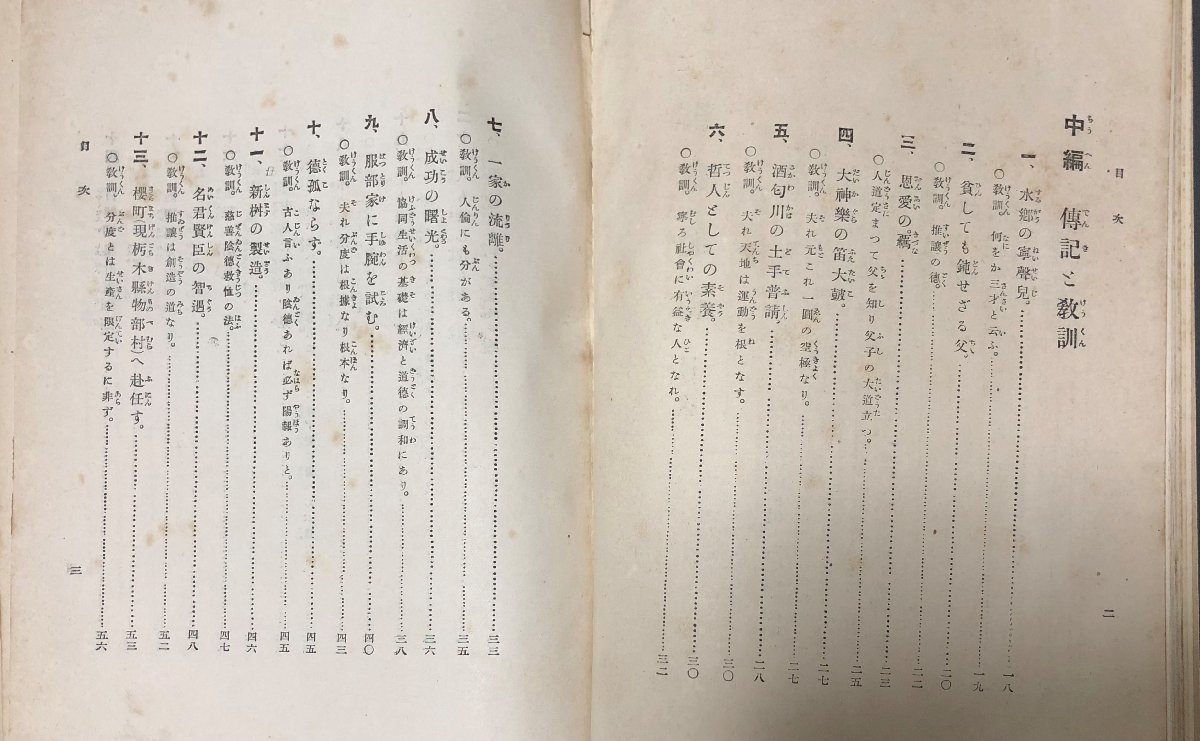 目次
中編 傳記と教訓
一、水郷の寧聲兒。……一八
〇教訓。何をか三才と云ふ。……一九
二、貧しても鈍せざる父。……二〇
〇教訓。推讓の德。……二二
三、恩愛の羈。……二三
〇人道定まつて父を知り父子の大道立つ。……二五
四、大神樂の笛大皷……二七
〇教訓。夫れ元これ一圓の空極なり。……二七
五、酒匂川の土手普請。……二八
〇教訓。夫れ天地は運動を根となす。……三〇
六、哲人としての素養。……三〇
〇教訓。寧ろ社會に有益な人となれ。……三二
二
七、一家の流離。……三三
〇教訓。人倫にも分がある。……三五
八、成功の曙光。……三六
〇教訓。協同生活の基礎は經濟と道德の調和にあり。……三八
九、服部家に手腕を試む。……四〇
〇教訓。夫れ分度は根據なり根本なり。……四三
十、德孤ならず。……四五
〇教訓。古人言ふあり陰德あれば必ず陽報ありと。……四五
十一、新桝の製造。……四六
〇教訓。慈善陰德救恤の法。……四七
十二、名君賢臣の智遇。……四八
〇教訓。推讓は創造の道なり。……五二
十三、櫻町現栃木縣物部村)へ赴任す。……五三
〇教訓。分度とは生產を限定するに非ず。……五六
目次
三